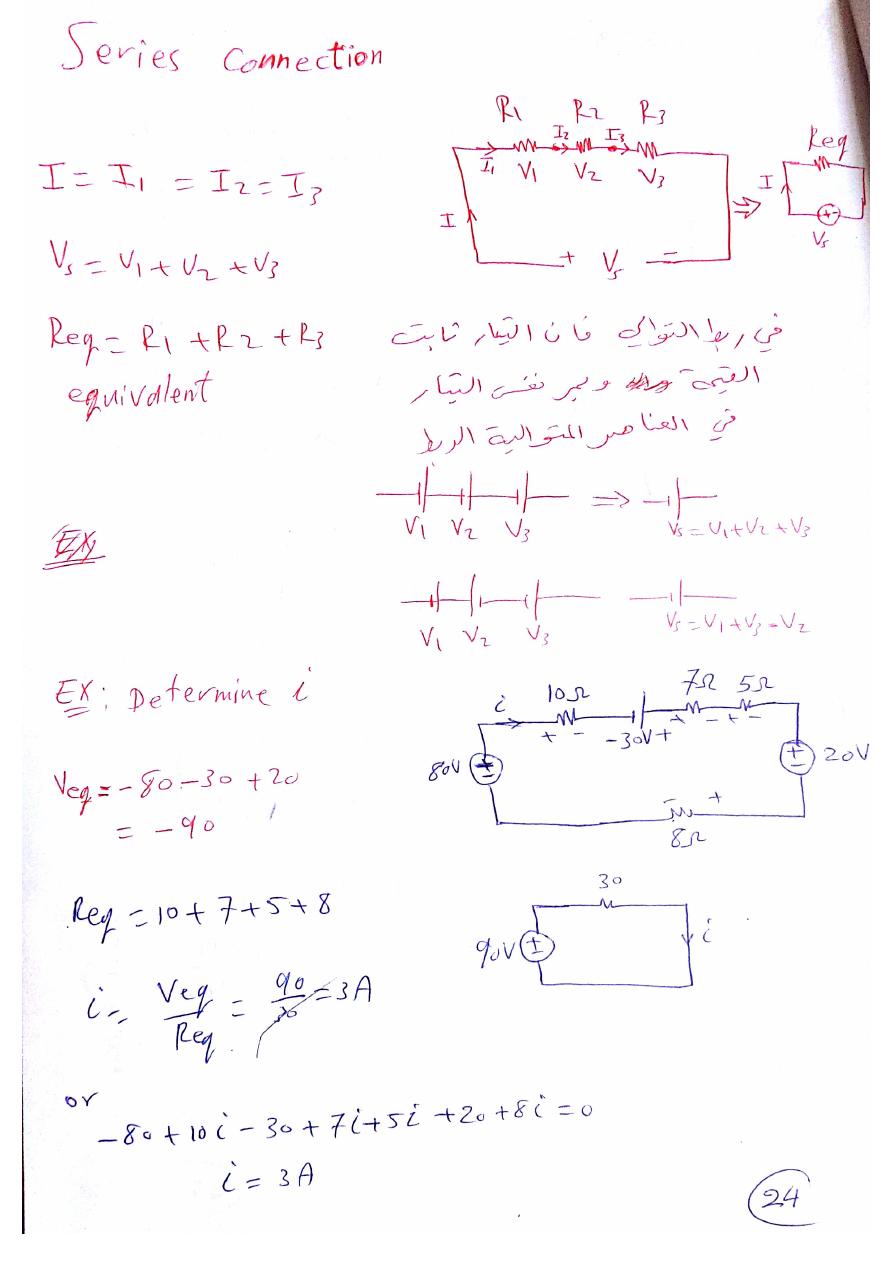 Series Connection
R1 R2 R3
I1 I2 I3
V1 V2 V3
I
+ Vs -
Req
I
Vs
I = I1 = I2 = I3
Vs = V1 + V2 + V3
Req = R1 + R2 + R3
equivalent
في ربط التوالي فان التيار ثابت
القيمة ويمر نفس التيار
في العناصر المتوالية الربط
V1 V2 V3
Vs = V1 + V2 + V3
EX
V1 V2 V3
Vs = V1 + V3 - V2
EX: Determine i
i 10Ω 7Ω 5Ω
+ - -30V+ + - + -
80V
20V
- +
8Ω
Veq = -80 - 30 + 20
= -90
Req = 10 + 7 + 5 + 8
30
90V
i
i = Veq/Req = 90/30 = 3A
or
-80 + 10i - 30 + 7i + 5i + 20 + 8i = 0
i = 3A
24